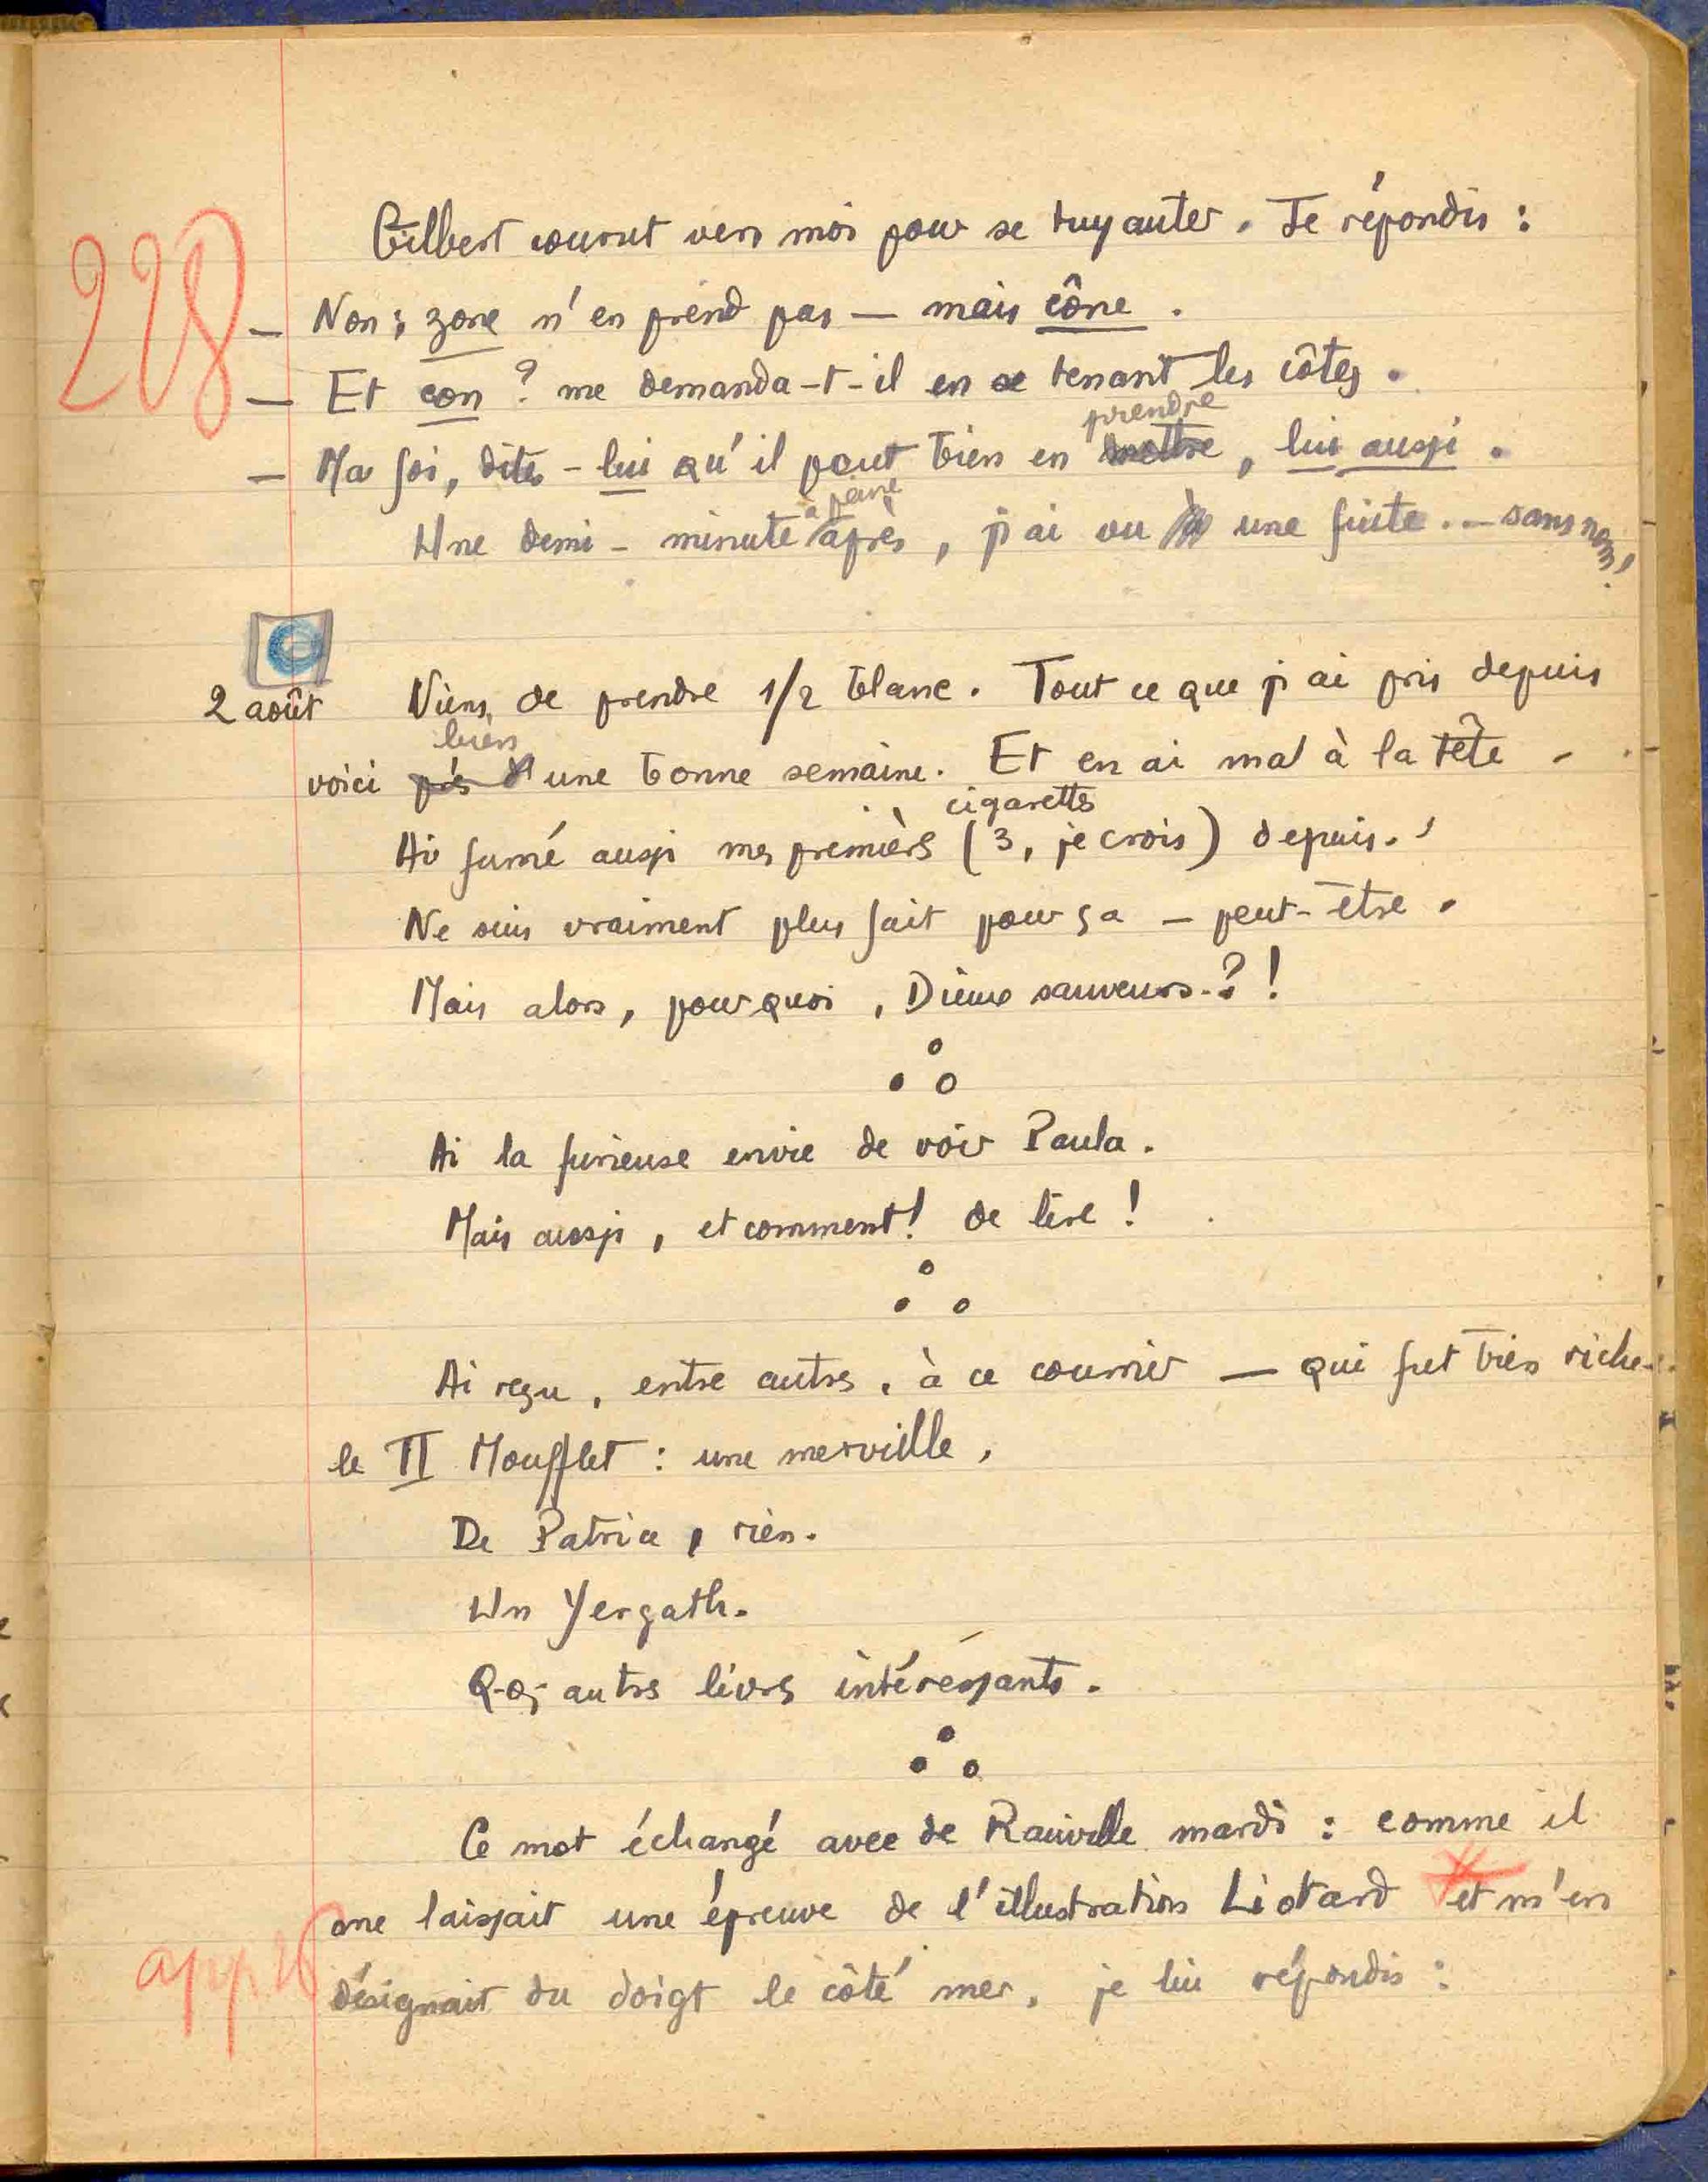 228
Gilbert courut vers moi pour se tuyauter. Je répondis :
— Non ; zone n'en prend pas — mais cône.
— Et con ? me demanda-t-il en se tenant les côtes.
prendre
— Ma foi, dites-lui qu'il peut bien en mettre, lui aussi.
à peine
Une demi-minute après, j'ai vu une fuite... sans nom !
2 août Viens de prendre 1/2 blanc. Tout ce que j'ai pris depuis
bien
voici près d'une bonne semaine. Et en ai mal à la tête.
cigarettes
Ai fumé aussi mes premières (3, je crois) depuis.
Ne suis vraiment plus fait pour ça — peut-être.
Mais alors, pourquoi, Dieux sauveurs ? !
Ai la furieuse envie de voir Paula.
Mais aussi, et comment ! de lire !
Ai reçu, entre autres, à ce courrier — qui fut très riche
le II Moufflet : une merveille.
De Patrice, rien.
Un Yergath.
Q-q; autres livres intéressants.
Ce mot échangé avec de Rauville mardi : comme il
me laissait une épreuve de l'illustration Liotard et m'en
app
désignait du doigt le côté mer, je lui répondis :